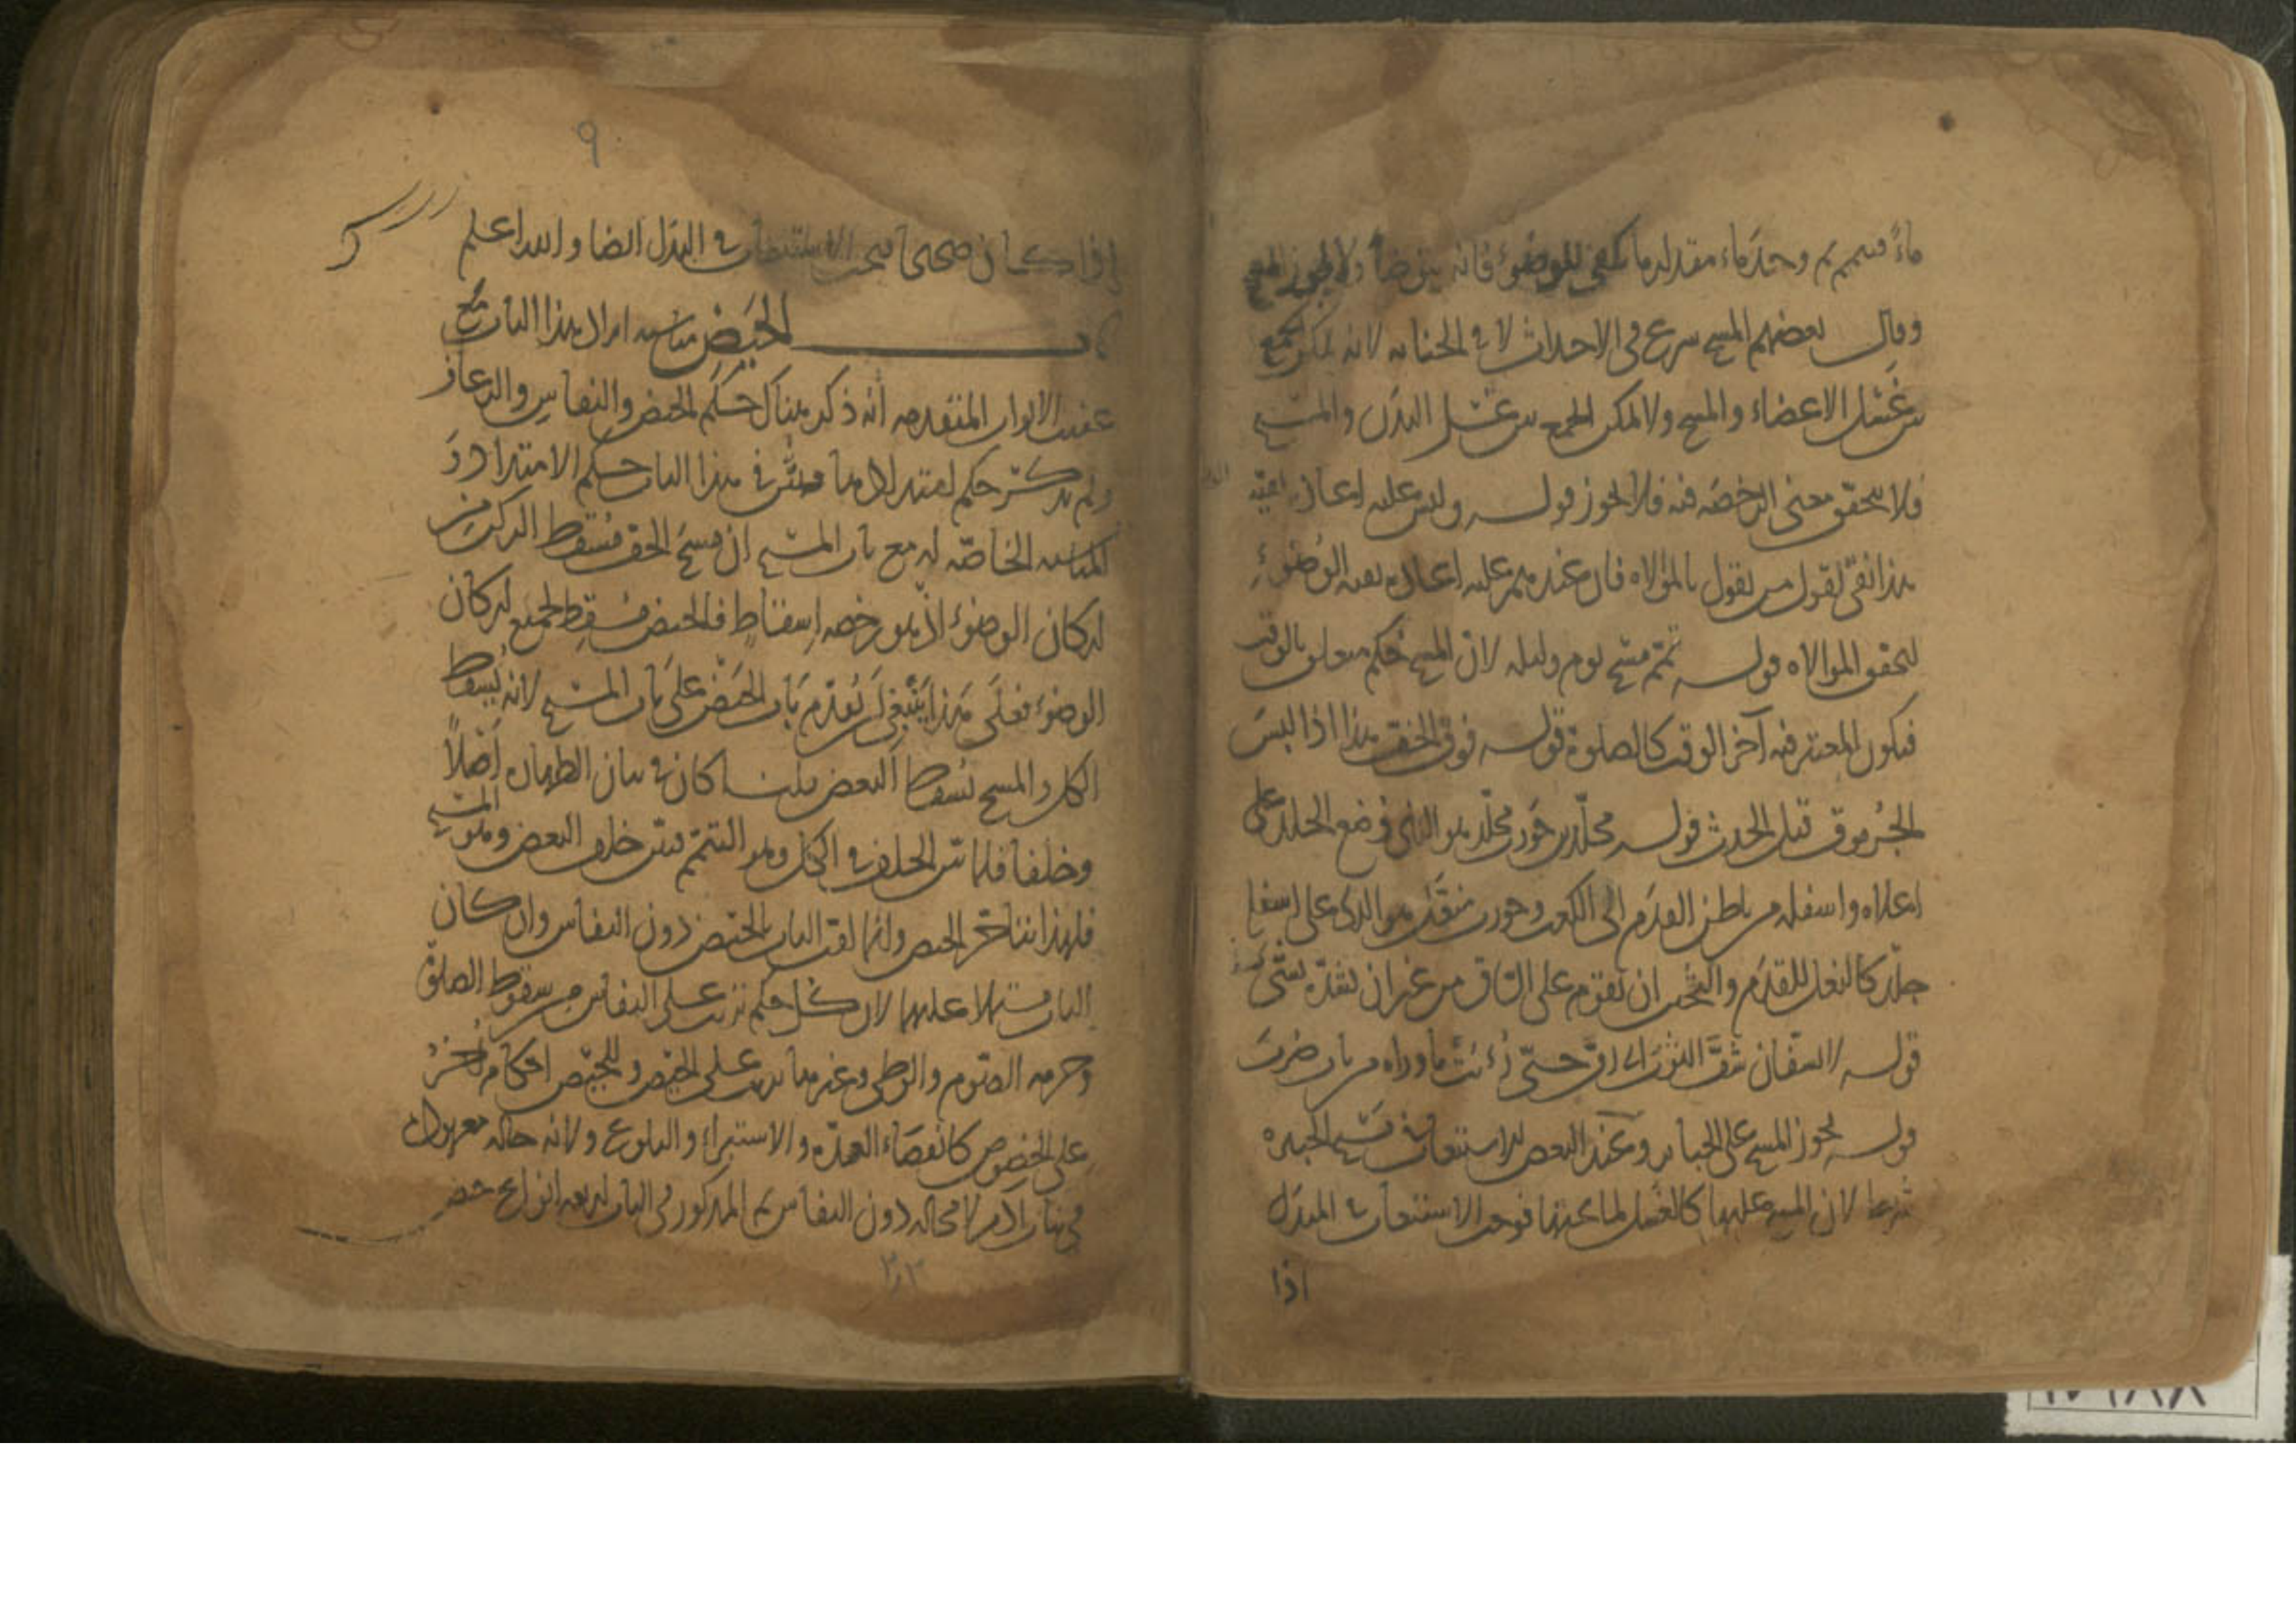 ماء فتيمم ثم وجد ماء مقدار ما يكفي للوضوء فانه يتوضأ ولا يجوز المسح
وقال بعضهم المسح شرع في الاحداث لا في الجنابة لانه يمكن الجمع
بين غسل الاعضاء والمسح ولا يمكن الجمع بين غسل البدن والمسح
فلا يتحقق معنى الرخصة فيه فلا يجوز قوله وليس عليه اعادة بقية
هذا نفي لقول من يقول بالموالاة فان عندهم عليه اعادة بقية الوضوء
لتحقق الموالاة قوله تمم مسح يوم وليلة لان المسح حكم متعلق بالوقت
فيكون المعتبر فيه آخر الوقت كالصلوة قوله فوق الخف هذا اذا لبس
الجرموق قبل الحدث قوله مجلدين جورب مجلد هو الذي وضع الجلد على
اعلاه واسفله من باطن القدم الى الكعب وجورب منعّل هو الذي على اسفله
جلد كالنعل للقدم والثخين ان يقوم على الساق من غير ان يشده بشئ
قوله لا يشفان شف الثوب اي رق حتى رأيت ما وراه من باب ضرب
قوله يجوز المسح على الجبائر وعند البعض الاستيعاب في مسح الجبيرة
شرط لان المسح عليها كالغسل لما تحتها فوجب الاستيعاب في المبدل
اذا
٩
اذا كان صحيحا يجب الاستيعاب في البدل ايضا والله اعلم
باب الحيض مناسبة ايراد هذا الباب مع
عقيب الابواب المتقدمة انه ذكر هناك حكم الحيض والنفاس والرعاف
ولم يذكر حكم امتدادها فبين في هذا الباب حكم الامتداد و
المناسبة الخاصة له مع باب المسح ان مسح الخف مسقط الركن من
اركان الوضوء اذ هو رخصة اسقاط فالحيض مسقط لجميع اركان
الوضوء فعلى هذا ينبغي ان يقدم باب الحيض على باب المسح لانه يسقط
الكل والمسح يسقط البعض قلنا كان في بيان الطهارة اصلا
وخلفا فلما بين الخلف في الكل وهو التيمم فبين خلف البعض وهو المسح
فلهذا بينا تأخر الحيض وانما لقب الباب بالحيض دون النفاس وان كان
الباب مشتملا عليهما لان كل حكم ترتب على النفاس من سقوط الصلوة
وحرمة الصوم والوطي وغيرها ترتب على الحيض وللحيض احكام أخر
على الخصوص كانقضاء العدة والاستبراء والبلوغ ولانه حالة معهودة
في بنات آدم لا محالة دون النفاس ثم المذكور في الباب اربعة انواع حيض